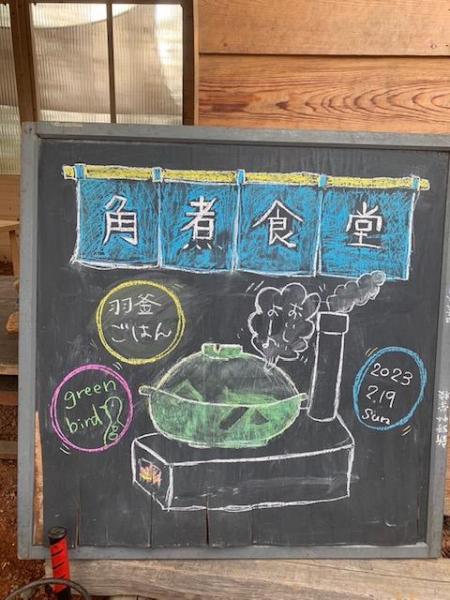 角煮食堂
羽釜
ごはん
おいし
いよ
green
bird
2023
2.19
Sun